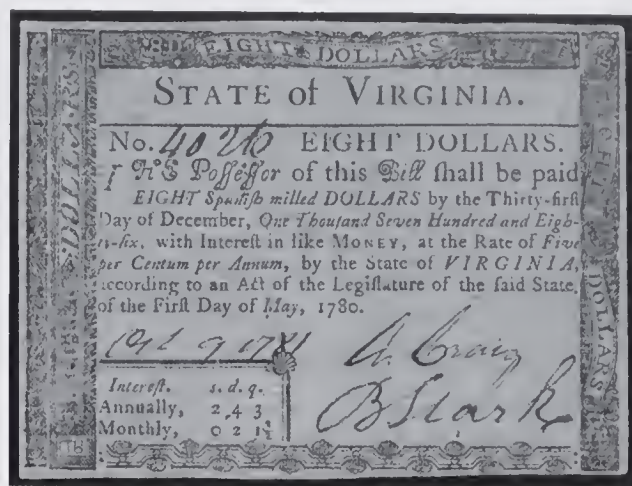 EIGHT DOLLARS
STATE of VIRGINIA.
No. 4026 EIGHT DOLLARS.
THE Poſſeſſor of this Bill ſhall be paid
EIGHT Spaniſh milled DOLLARS by the Thirty-firſt
Day of December, One Thouſand Seven Hundred and Eigh-
ty-ſix, with Intereſt in like MONEY, at the Rate of Five
per Centum per Annum, by the State of VIRGINIA,
according to an Act of the Legiſlature of the ſaid State,
of the Firſt Day of May, 1780.
9 1781 A. Craig
Intereſt. s. d. q. B Stark
Annually, 2 4 3
Monthly, 0 2 1½
DOLLARS
EIGHT DOLLARS